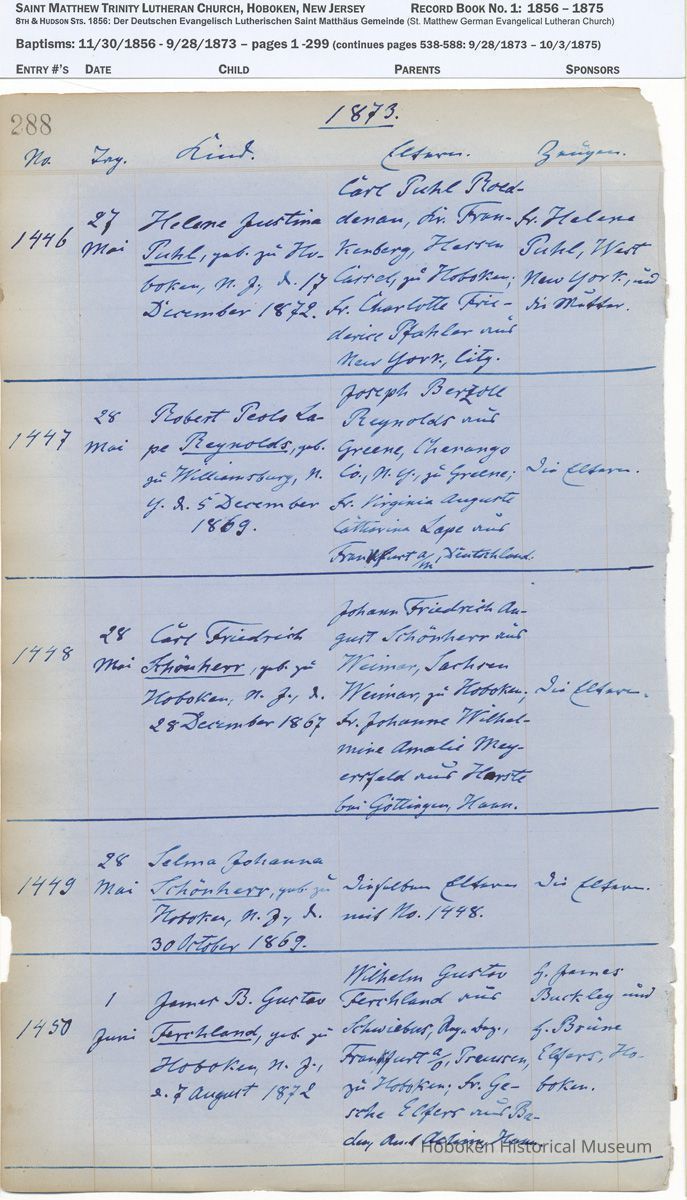 SAINT MATTHEW TRINITY LUTHERAN CHURCH, HOBOKEN, NEW JERSEY RECORD BOOK NO. 1: 1856 – 1875
8TH & HUDSON STS. 1856: Der Deutschen Evangelisch Lutherischen Saint Matthäus Gemeinde (St. Matthew German Evangelical Lutheran Church)
Baptisms: 11/30/1856 - 9/28/1873 – pages 1 -299 (continues pages 538-588: 9/28/1873 – 10/3/1875)
ENTRY #'S DATE CHILD PARENTS SPONSORS
288
1873.
No. Tag. Kind. Eltern. Zeugen.
1446
27
Mai
Helene Justina
Puhl, geb. zu Ho-
boken, N. J., d. 17
December 1872.
Carl Puhl
denau, Kr. Fran-
kenberg, Hessen
Cassel, zu Hoboken;
Fr. Charlotte Frie-
derice Pfahler aus
New York, City.
Fr. Helene
Puhl, West
New York, und
die Mutter.
1447
28
Mai
Robert Pedo La-
pe Reynolds, geb.
zu Williamsburg, N.
Y. d. 5 December
1869.
Joseph
Reynolds aus
Greene, Chenango
Co., N. Y., zu Greene;
Fr. Virginia Auguste
Catharina Lape aus
Frankfurt a/m, Deutschland.
Die Eltern.
1448
28
Mai
Carl Friedrich
Schönherr, geb. zu
Hoboken, N. J., d.
28 December 1867
Johann Friedrich Au-
gust Schönherr aus
Weimar, Sachsen
Weimar, zu Hoboken;
Fr. Johanne Wilhel-
mine Amalie Mey-
ersfeld aus Harste
bei Göttingen, Hann.
Die Eltern.
1449
28
Mai
Selma Johanna
Schönherr, geb. zu
Hoboken, N. J., d.
30 October 1869.
Dieselben Eltern
mit No. 1448.
Die Eltern.
1450
1
Juni
James B. Gustav
Ferchland, geb. zu
Hoboken, N. J.,
d. 7 August 1872
Wilhelm Gustav
Ferchland aus
Schwiebus, Reg. Bez.,
Frankfurt a/o, Preussen,
zu Hoboken; Fr. Ge-
sche Elfers aus Ba-
den, Amt Achim, Hann.
H. James
Buckley und
H. Brüne
Elfers, Ho-
boken.
Hoboken Historical Museum